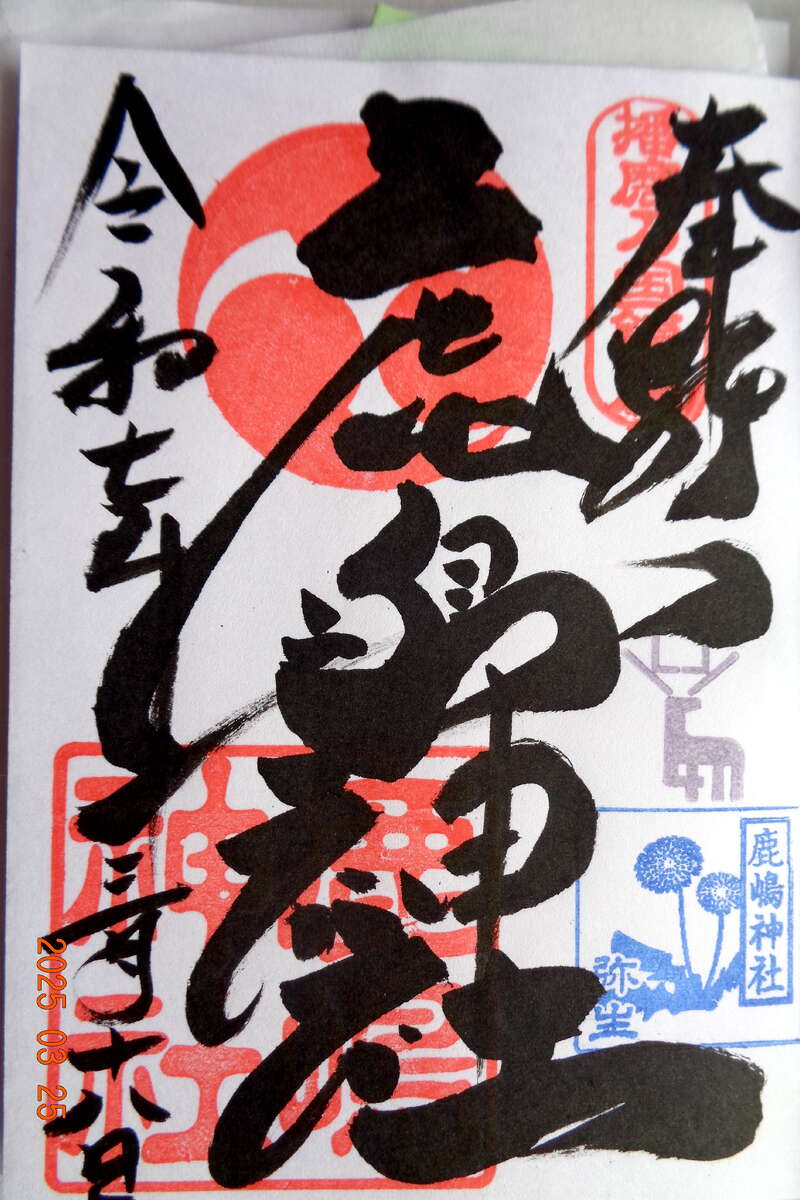 奉拝
播磨
鹿嶋神社
鹿嶋神社
令和七年三月十八日
鹿嶋神社
弥生
2025 03 25